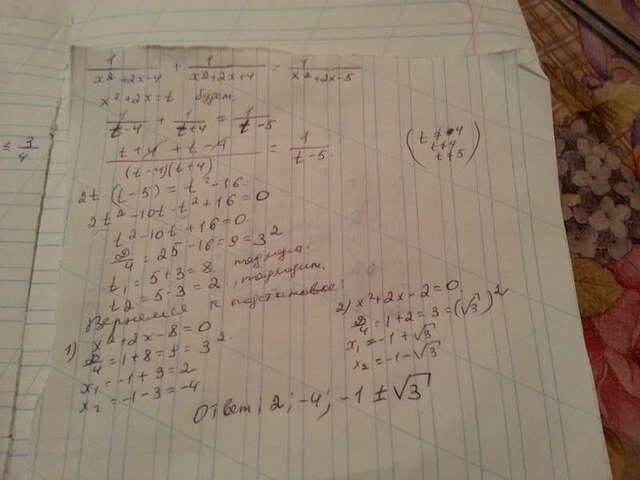 ≤ 3/4
1/(x²+2x-4) + 1/(x²+2x+4) = 1/(x²+2x-5)
x²+2x=t будет
1/(t-4) + 1/(t+4) = 1/(t-5)
(t+4+t-4)/((t-4)(t+4)) = 1/(t-5)
(t≠-4
t≠4
t≠5)
2t(t-5)=t²-16
2t²-10t-t²+16=0
t²-10t+16=0
D/4=25-16=9=3²
t₁=5+3=8 подходит.
t2=5-3=2, подходит.
Вернемся к подстановке:
1) x²+2x-8=0
D/4=1+8=9=3²
x₁=-1+3=2
x₂=-1-3=-4
2) x²+2x-2=0
D/4=1+2=3=(√3)²
x₁=-1+√3
x₂=-1-√3
Ответ: 2; -4; -1±√3